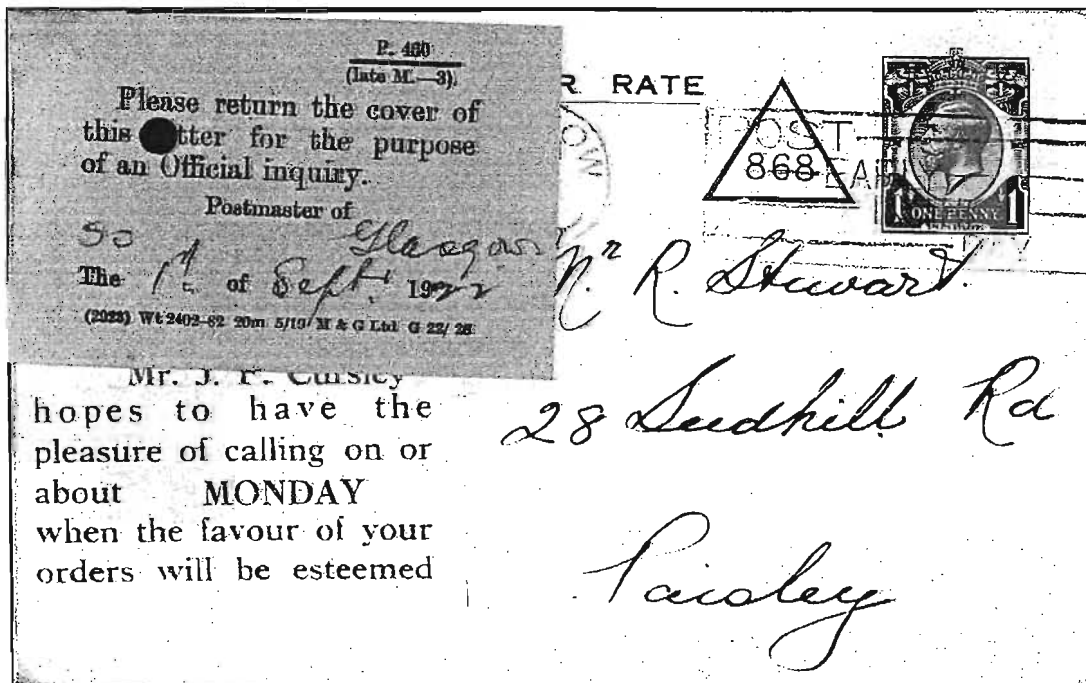 P. 460
(late M.—3).
Please return the cover of
this tter for the purpose
of an Official inquiry.
Postmaster of
Glasgow
The 1st of Sept. 1922
(2023) Wt 2402-82 20m 5/19 M & G Ltd G 22/
R RATE
OW
POST
EARLY
868
1 ONE PENNY 1
Mr. J. P. Cursley
hopes to have the
pleasure of calling on or
about MONDAY
when the favour of your
orders will be esteemed
R. Stewart
28 Rd
Paisley